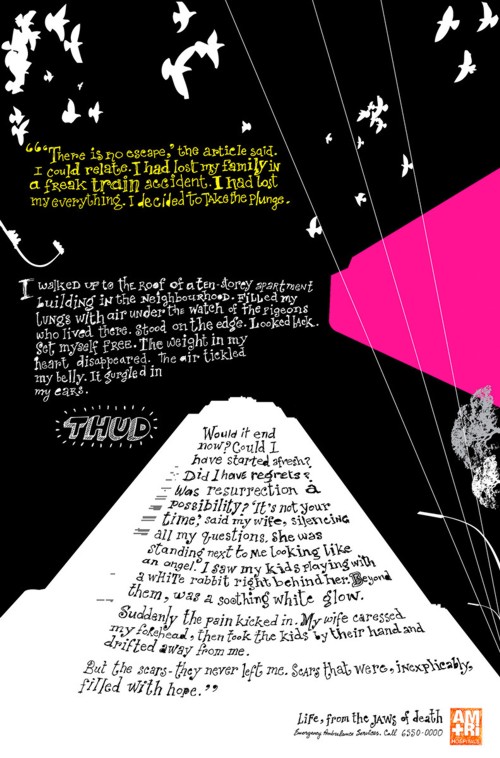 ““There is no escape,’ the article said.
I could relate. I had lost my family in
a freak train accident. I had lost
my everything. I decided to take the plunge.
I walked up to the roof of a ten-storey apartment
building in the neighbourhood. Filled my
lungs with air under the watch of the pigeons
who lived there. Stood on the edge. Looked back.
Set myself free. The weight in my
heart disappeared. The air tickled
my belly. It gurgled in
my ears.
THUD
Would it end
now? Could I
have started afresh?
Did I have regrets?
Was resurrection a
possibility? ‘It's not your
time,’ said my wife, silencing
all my questions. She was
standing next to me looking like
an angel. I saw my kids playing with
a white rabbit right behind her. Beyond
them, was a soothing white glow.
Suddenly the pain kicked in. My wife caressed
my forehead, then took the kids by their hand and
drifted away from me.
But the scars - they never left me. Scars that were, inexplicably,
filled with hope.””
Life, from the jaws of death
Emergency Ambulance Services. Call 6550-0000
AM
+RI
HOSPITALS